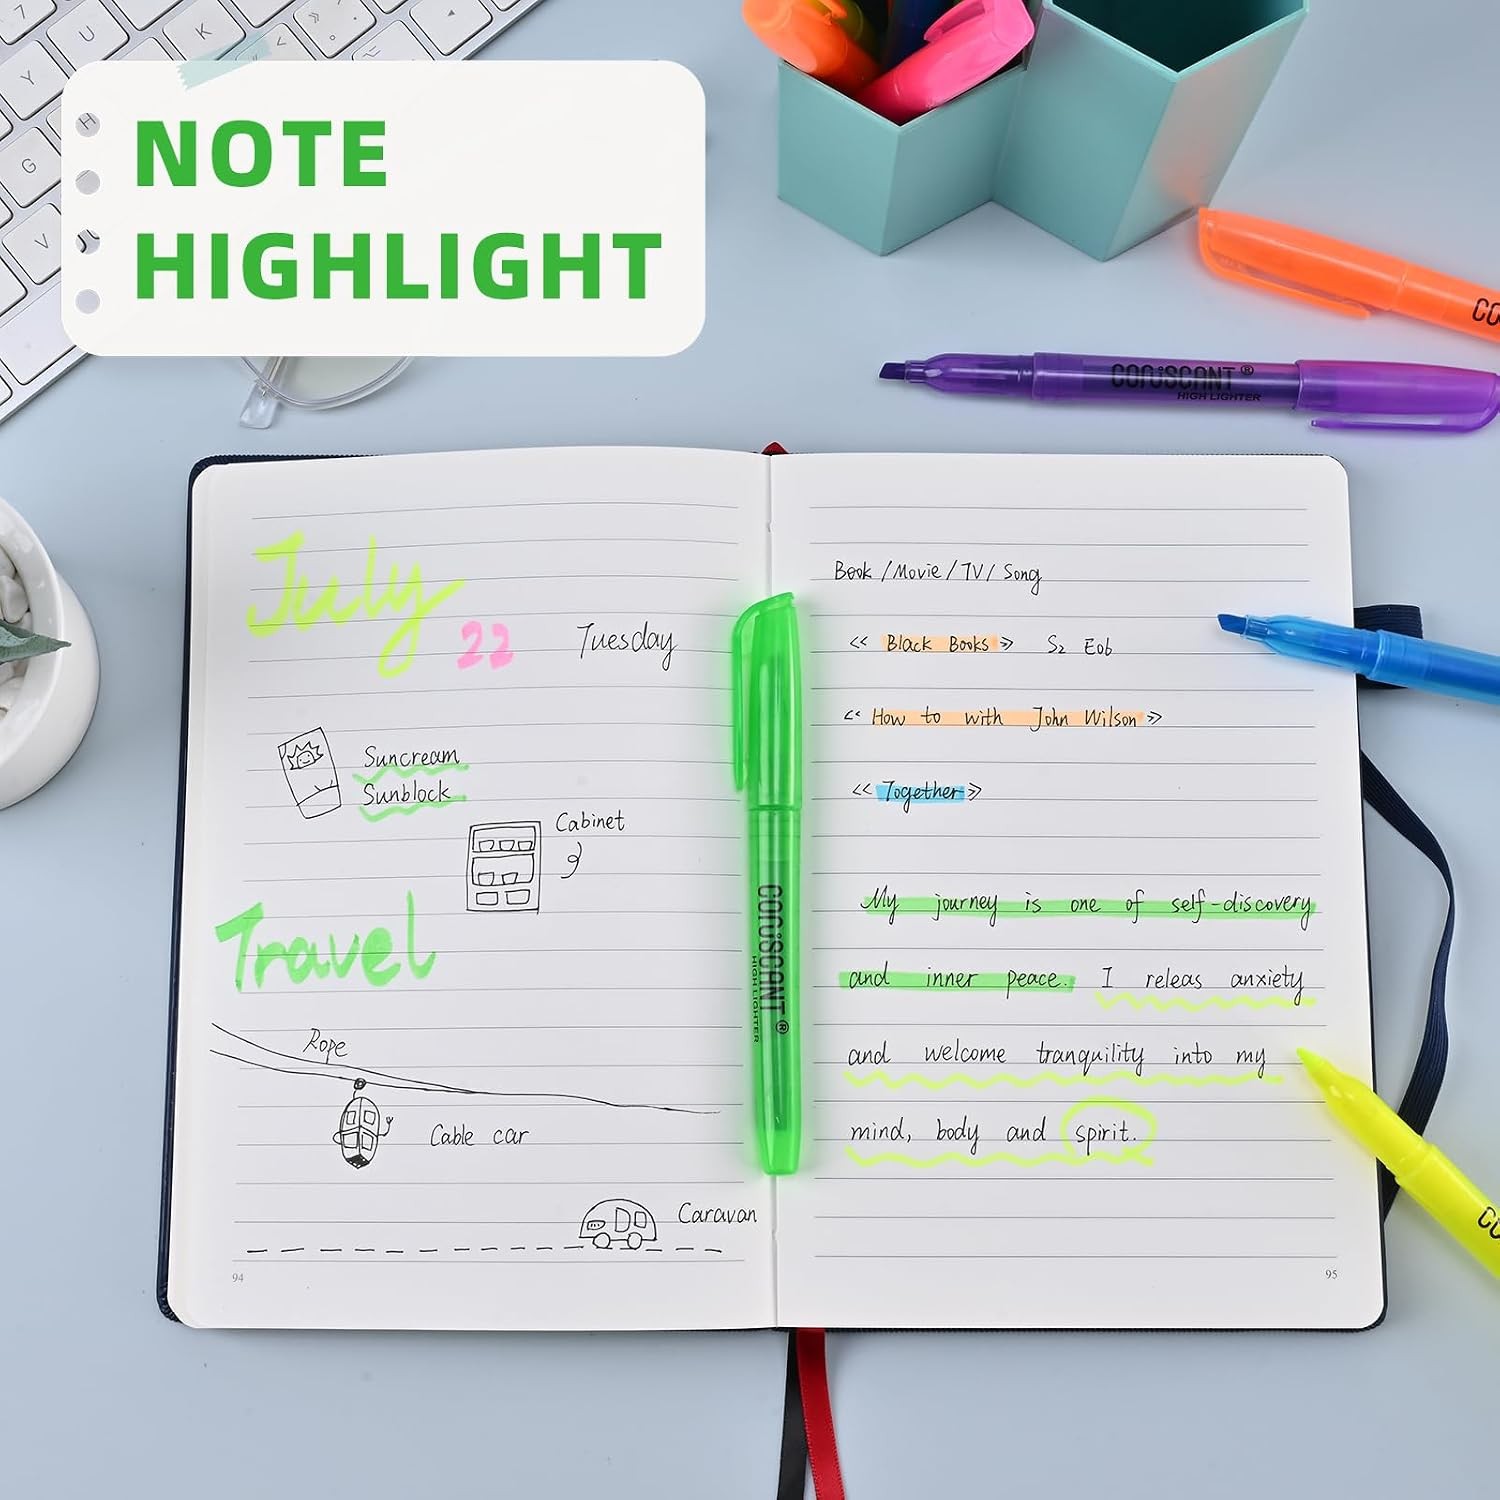 NOTE
HIGHLIGHT
Y
U
K
G
H
V
CORUSCANT®
HIGH LIGHTER
July 22 Tuesday
Suncream
Sunblock
Cabinet
Travel
Rope
Cable car
Caravan
94
CORUSCANT®
HIGH LIGHTER
Book / Movie / TV / Song
<< Black Books >> S2 E06
<< How to with John Wilson >>
<< Together >>
My journey is one of self-discovery
and inner peace. I releas anxiety
and welcome tranquility into my
mind, body and spirit.
95